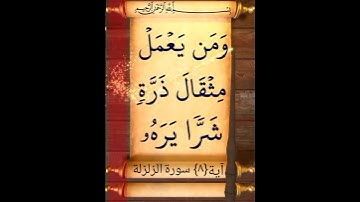 بسم الله الرحمن الرحيم
وَمَن يَعۡمَلۡ
مِثۡقَالَ ذَرَّةٖ
شَرّٗا يَرَهُۥ
آية{٨} سورة الزلزلة